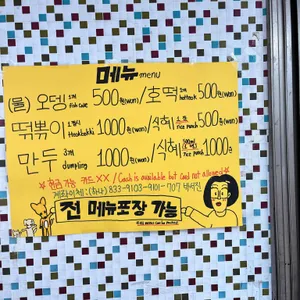 메뉴 menu
(물) 오뎅 2개 fish cake 500원(won) / 호떡 1개 hotteok 500원(won)
떡볶이 1접시 tteokbokki 1000원(won) / 식혜 소 rice punch 500원(won)
만두 3개 dumpling 1000원(won) / 식혜 rice punch 1000원(won)
현금 가능 카드 XX / Cash is available but card not allowed
계좌이체: (하나) 833-9103-9101-707 박서진
전 메뉴포장 가능